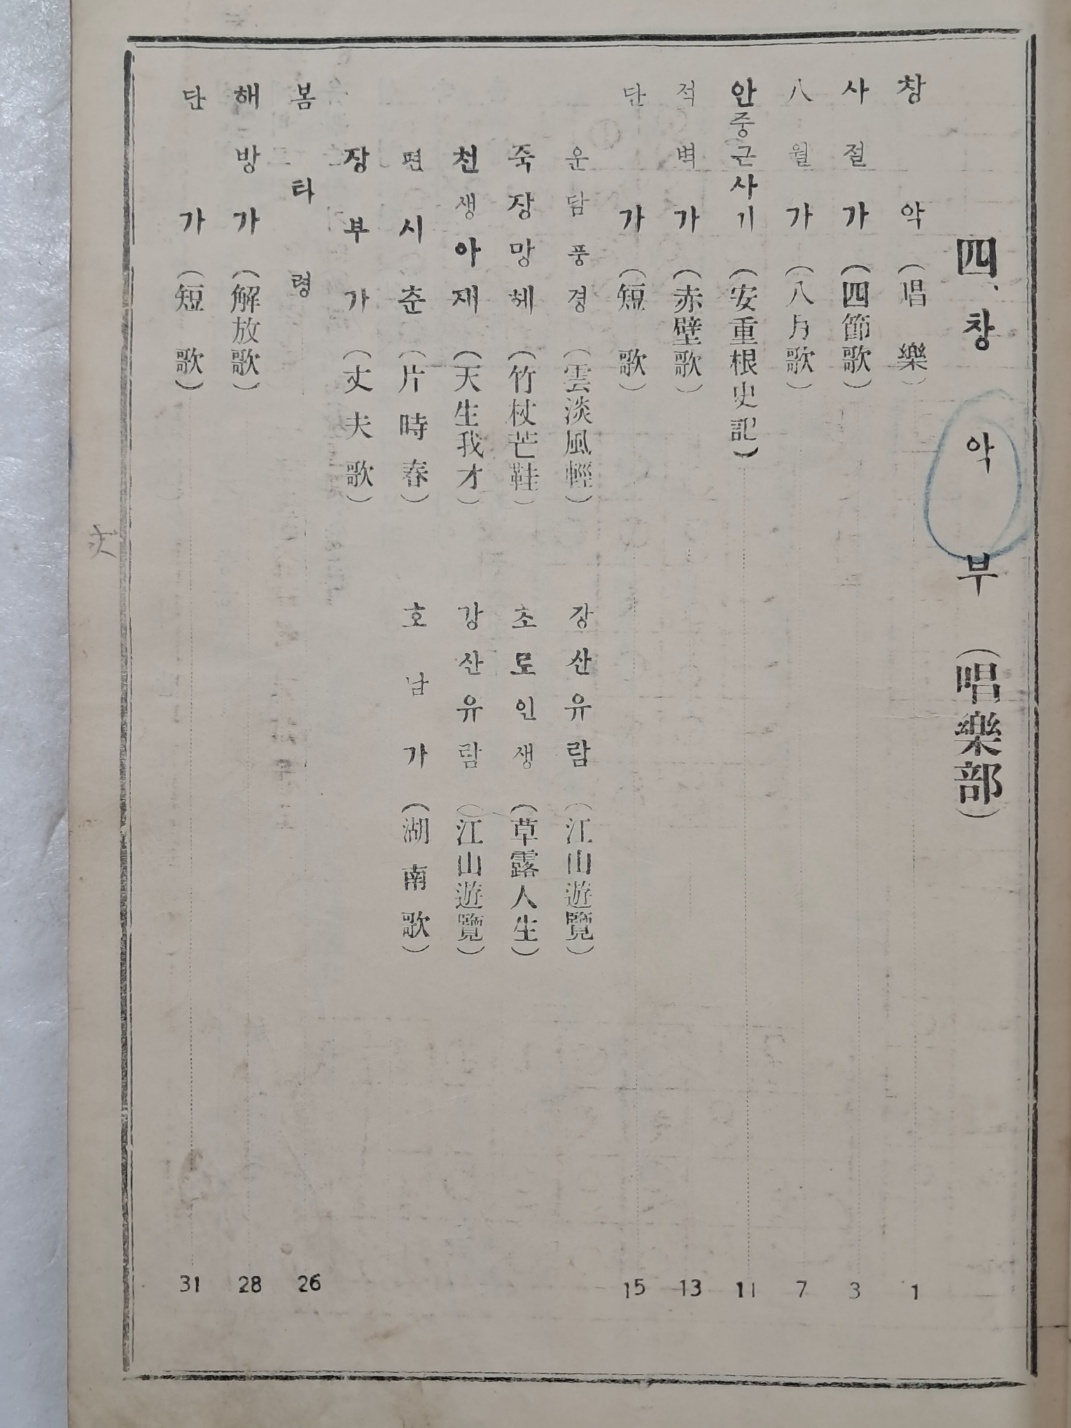 四、창악부（唱樂部）
창악（唱樂） 1
사절가（四節歌） 3
八월가（八月歌） 7
안중근사기（安重根史記） 11
적벽가（赤壁歌） 13
단가（短歌） 15
운담풍경（雲淡風輕） 강산유람（江山遊覽）
죽장망혜（竹杖芒鞋） 초로인생（草露人生）
천생아재（天生我才） 강산유람（江山遊覽）
편시춘（片時春） 호남가（湖南歌）
장부가（丈夫歌）
봄타령 26
해방가（解放歌） 28
단가（短歌） 31